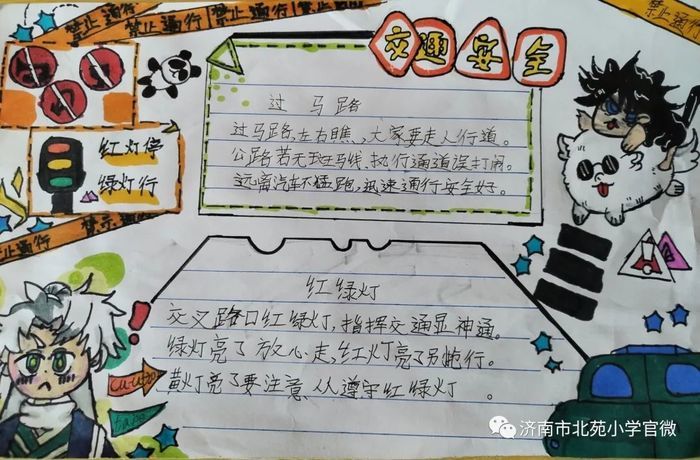 禁止通行 禁止通行 禁止通行
禁止通行
交通安全
红灯停
绿灯行
过马路
过马路,左右瞧,大家要走人行道。
公路若无斑马线,执行通道误打闹。
远离汽车不猛跑,迅速通行安全好。
禁止通行
止通行
红绿灯
交叉路口红绿灯,指挥交通显神通。
绿灯亮了放心走,红灯亮了别
行。
黄灯亮了要注意,从遵守红绿灯。
济南市北苑小学官微